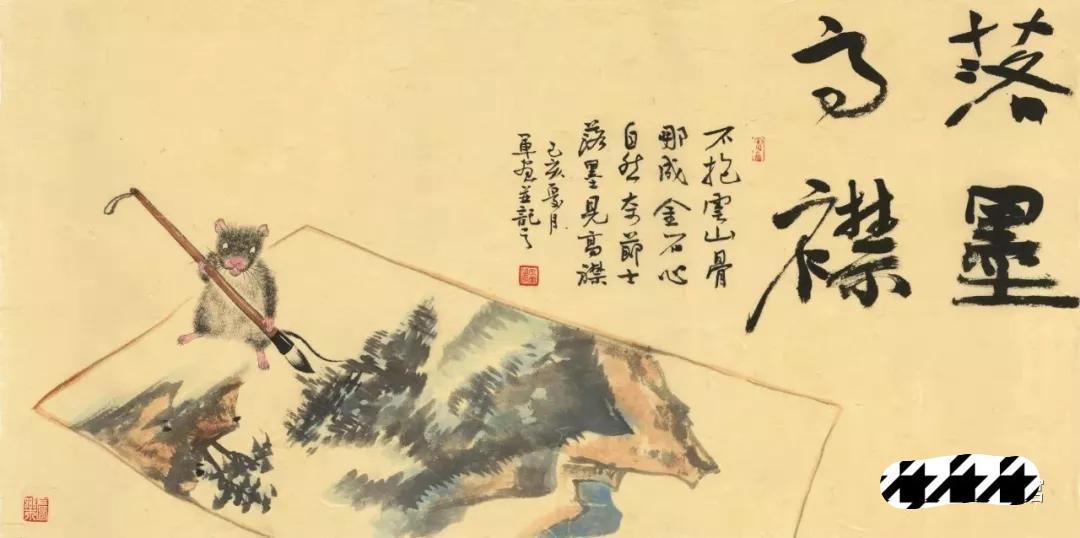 落墨
高襟
不抱雲山骨
那成金石心
自然奇節士
落墨見高襟
己亥夏月
軍畫並記之